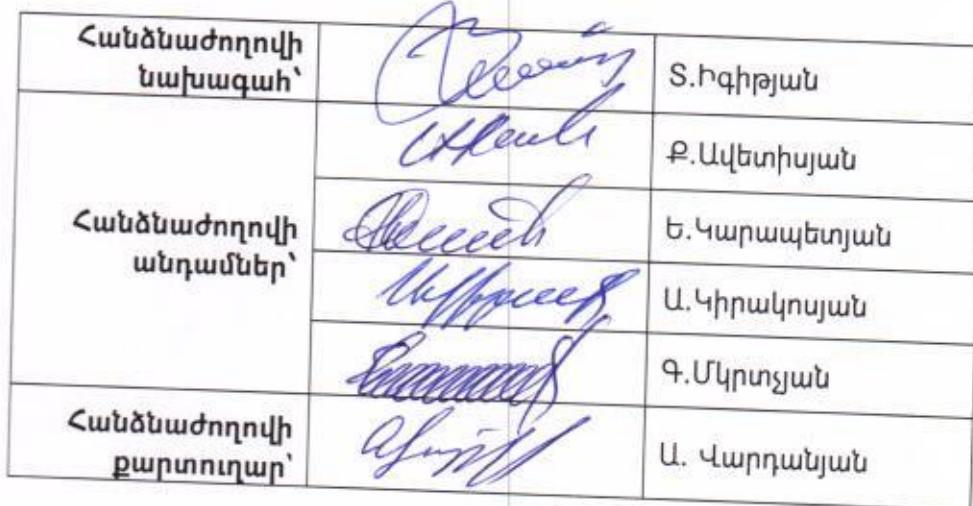 Հանձնաժողովի
նախագահ՝
Տ.Իգիթյան
Հանձնաժողովի
անդամներ՝
Ք.Ավետիսյան
Ե.Կարապետյան
Ա.Կիրակոսյան
Գ.Մկրտչյան
Հանձնաժողովի
քարտուղար՝
Ա. Վարդանյան